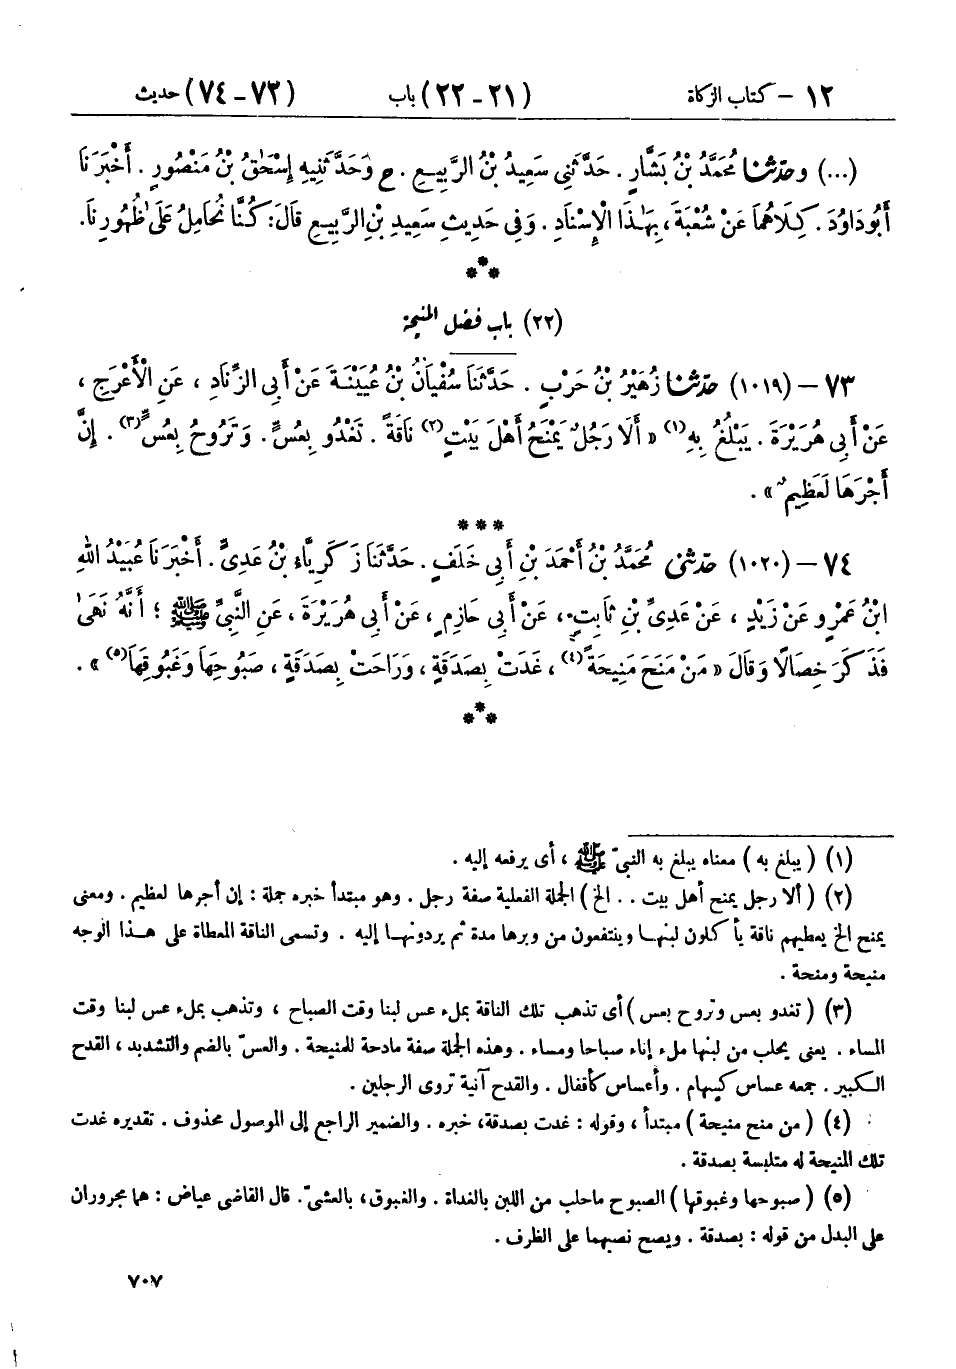 ١٢ - كتاب الزكاة (٢١ - ٢٢) باب (٧٣ - ٧٤) حديث
(...) وحَدَّثَنَا مُحَمَّدُ بْنُ بَشَّارٍ . حَدَّثَنِي سَعِيدُ بْنُ الرَّبِيعِ . ح وَحَدَّثَنِيهِ إِسْحَٰقُ بْنُ مَنْصُورٍ . أَخْبَرَنَا
أَبُو دَاوُدَ . كِلَاهُمَا عَنْ شُعْبَةَ ، بِهَٰذَا الْإِسْنَادِ . وَفِي حَدِيثِ سَعِيدِ بْنِ الرَّبِيعِ قَالَ: كُنَّا نُحَامِلُ عَلَىٰ ظُهُورِنَا.
***
(٢٢) باب فضل المنيحة
٧٣ - (١٠١٩) حَدَّثَنَا زُهَيْرُ بْنُ حَرْبٍ . حَدَّثَنَا سُفْيَانُ بْنُ عُيَيْنَةَ عَنْ أَبِي الزِّنَادِ ، عَنِ الْأَعْرَجِ ،
عَنْ أَبِي هُرَيْرَةَ . يَبْلُغُ بِهِ (١) « أَلَا رَجُلٌ يَمْنَحُ أَهْلَ بَيْتٍ (٢) نَاقَةً . تَغْدُو بِعُسٍّ . وَتَرُوحُ بِعُسٍّ (٣) . إِنَّ
أَجْرَهَا لَعَظِيمٌ » .
***
٧٤ - (١٠٢٠) حَدَّثَنِي مُحَمَّدُ بْنُ أَحْمَدَ بْنِ أَبِي خَلَفٍ . حَدَّثَنَا زَكَرِيَّاءُ بْنُ عَدِيٍّ . أَخْبَرَنَا عُبَيْدُ اللهِ
ابْنُ عَمْرٍو عَنْ زَيْدٍ ، عَنْ عَدِيِّ بْنِ ثَابِتٍ ، عَنْ أَبِي حَازِمٍ ، عَنْ أَبِي هُرَيْرَةَ ، عَنِ النَّبِيِّ ﷺ ؛ أَنَّهُ نَهَىٰ
فَذَكَرَ خِصَالًا وَقَالَ « مَنْ مَنَحَ مَنِيحَةً (٤) ، غَدَتْ بِصَدَقَةٍ ، وَرَاحَتْ بِصَدَقَةٍ ، صَبُوحِهَا وَغَبُوقِهَا (٥) » .
***
(١) ( يبلغ به ) معناه يبلغ به النبيّ ﷺ ، أى يرفعه إليه .
(٢) ( ألا رجل يمنح أهل بيت . . الخ ) الجملة الفعلية صفة رجل . وهو مبتدأ خبره جملة : إن أجرها لعظيم . ومعنى
يمنح الخ يعطيهم ناقة يأكلون لبنها وينتفعون من وبرها مدة ثم يردونها إليه . وتسمى الناقة المعطاة على هذا الوجه
منيحة ومنحة .
(٣) ( تغدو بعس وتروح بعس ) أى تذهب تلك الناقة بملء عس لبنا وقت الصباح ، وتذهب بملء عس لبنا وقت
المساء . يعنى يحلب من لبنها ملء إناء صباحا ومساء . وهذه الجملة صفة مادحة للمنيحة . والعسّ بالضم والتشديد ، القدح
الكبير . جمعه عساس كسهام . وأعساس كأقفال . والقدح آنية تروى الرجلين .
(٤) ( من منح منيحة ) مبتدأ ، وقوله : غدت بصدقة، خبره . والضمير الراجع إلى الموصول محذوف . تقديره غدت
تلك المنيحة له متلبسة بصدقة .
(٥) ( صبوحها وغبوقها ) الصبوح ماحلب من اللبن بالغداة . والغبوق، بالعشىّ . قال القاضى عياض : هما مجروران
على البدل من قوله : بصدقة . ويصح نصبهما على الظرف .
٧٠٧